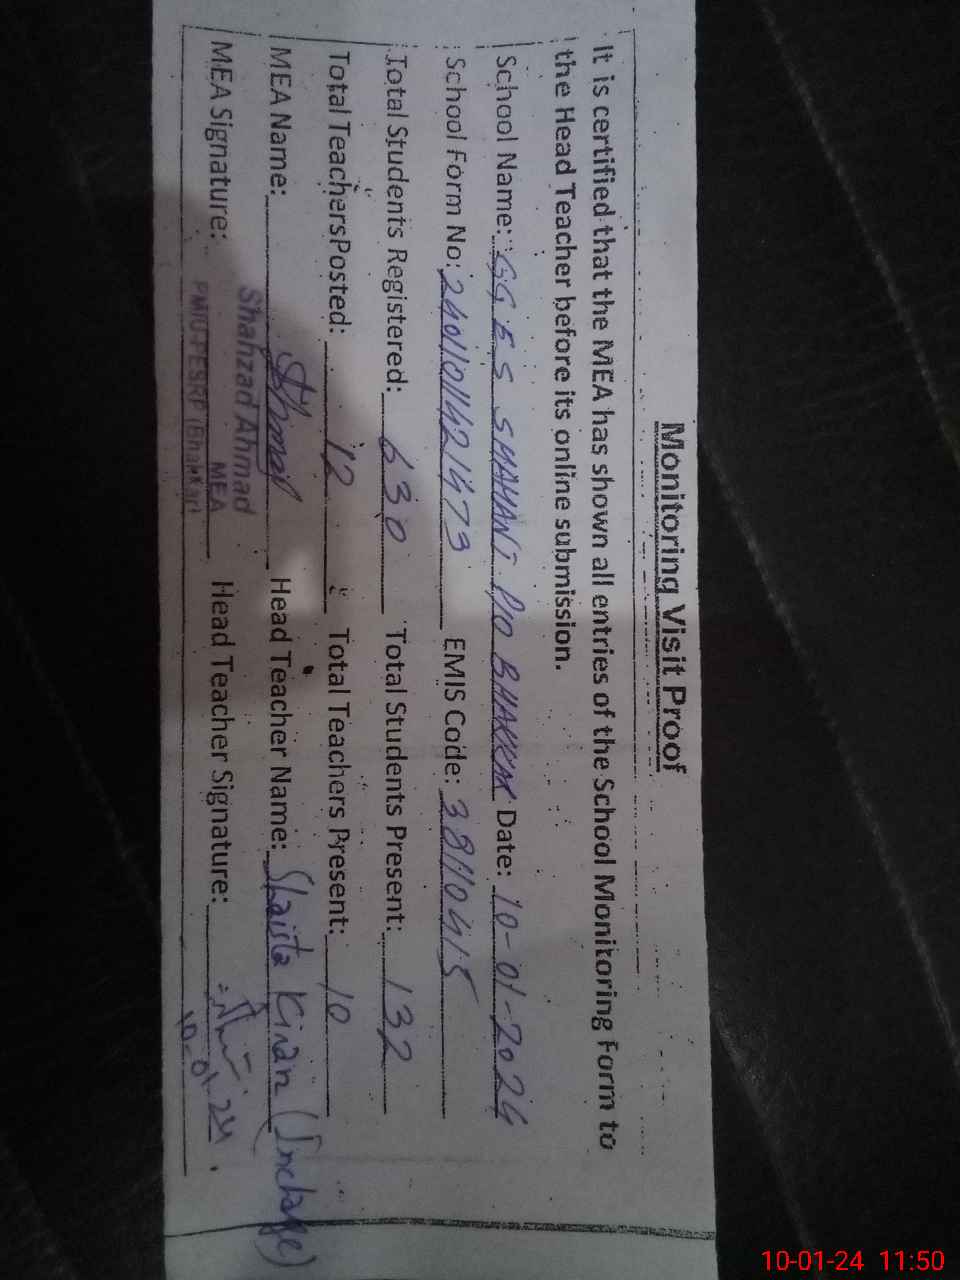 Monitoring Visit Proof
It is certified that the MEA has shown all entries of the School Monitoring Form to
the Head Teacher before its online submission.
School Name: GGES SHAHANI P/O BHAKKAR Date: 10-01-2024
School Form No: 24011011421473 EMIS Code: 38110415
Total Students Registered: 630 Total Students Present: 132
Total Teachers Posted: 12 Total Teachers Present: 10
MEA Name: Head Teacher Name: Shaista Kiran (Incharge)
Shahzad Ahmad
MEA Signature: MEA Head Teacher Signature:
PMIU-PESRP (Bhakkar)
10-01-24
10-01-24 11:50